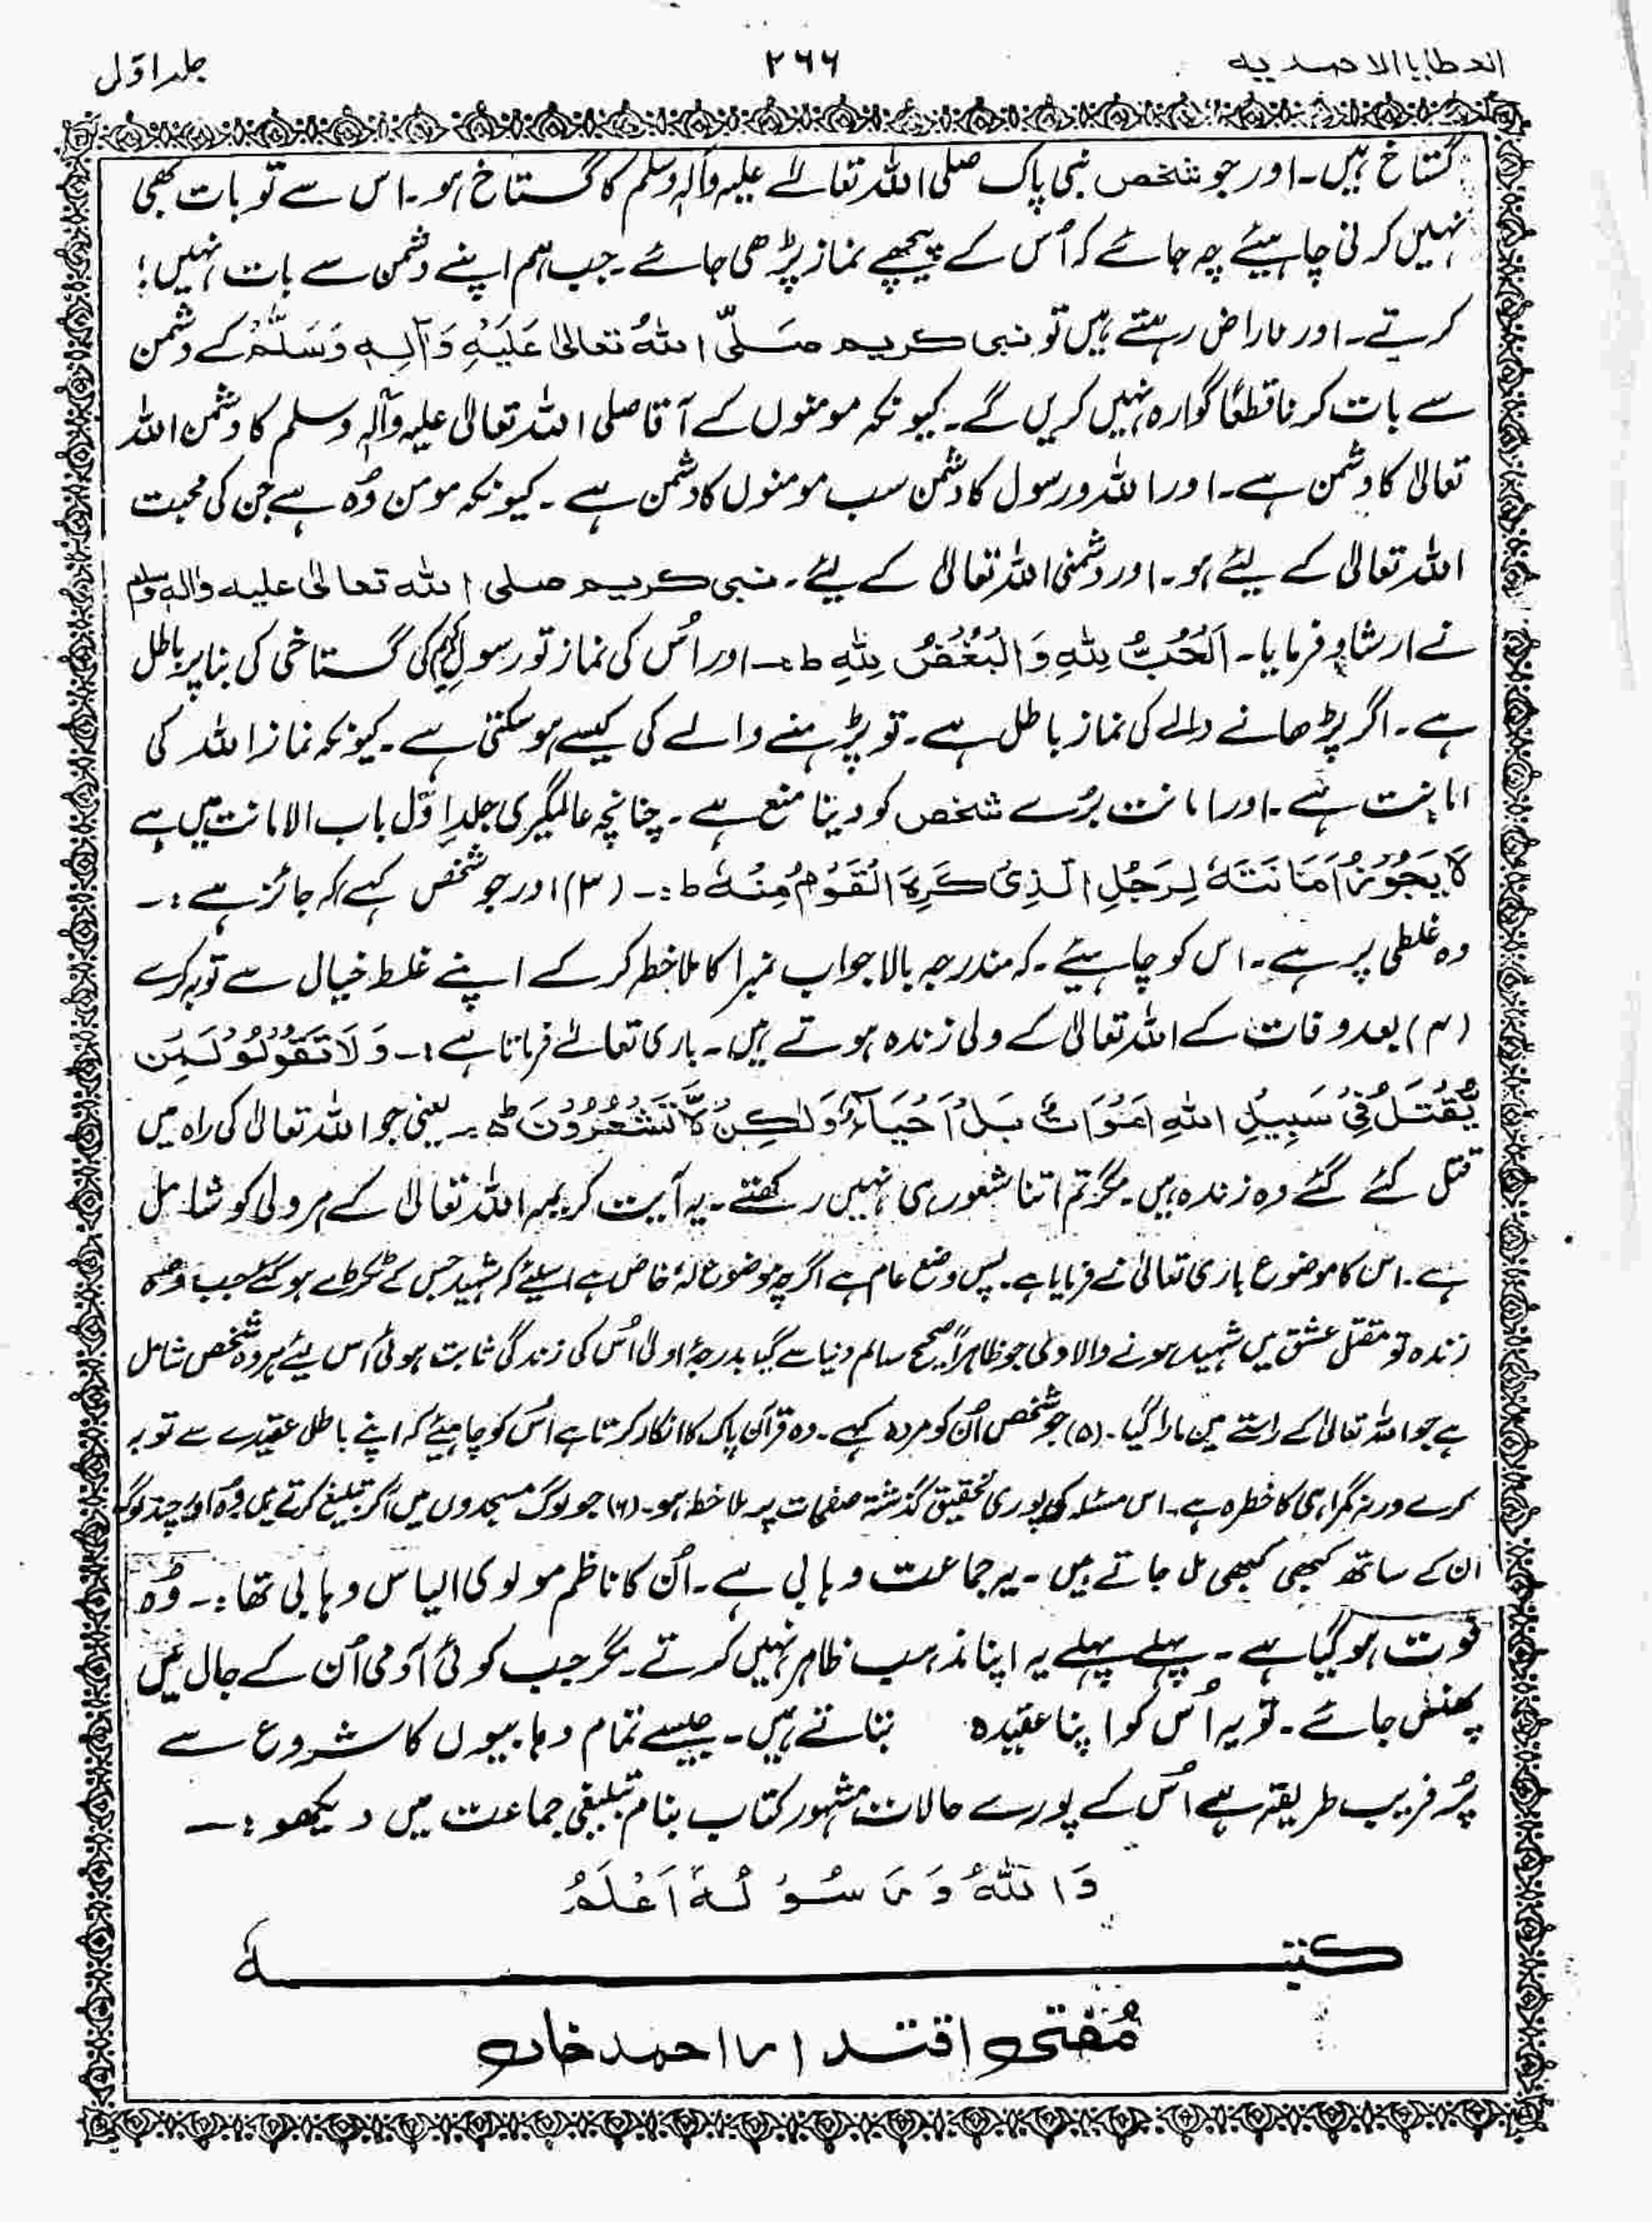 العطایا الاحمدیہ ۲۶۶ جلد اوّل
گستاخ ہیں۔ اور جو شخص نبی پاک صلی اللہ تعالےٰ علیہ وآلہٖ وسلم کا گستاخ ہو۔ اس سے تو بات بھی
نہیں کرنی چاہیئے چہ جائے کہ اُس کے پیچھے نماز پڑھی جائے۔ جب ہم اپنے دشمن سے بات نہیں
کرتے۔ اور ناراض رہتے ہیں تو نبی کریم صَلَّی اللہُ تعالیٰ عَلَیْہِ وَآلِہٖ وَسَلَّمْ کے دشمن
سے بات کرنا قطعًا گوارہ نہیں کریں گے۔ کیونکہ مومنوں کے آقا صلی اللہ تعالیٰ علیہ وآلہٖ وسلم کا دشمن اللہ
تعالیٰ کا دشمن ہے۔ اور اللہ ورسول کا دشمن سب مومنوں کا دشمن ہے۔ کیونکہ مومن وُہ ہے جن کی محبت
اللہ تعالیٰ کے لیئے ہو۔ اور دشمنی اللہ تعالیٰ کے لیئے۔ نبی کریم صلی اللہ تعالیٰ علیہ واٰلہٖ وسلم
نے ارشاد فرمایا۔ اَلْحُبُّ لِلّٰہِ وَالْبُغْضُ لِلّٰہِ ط ؎ اور اُس کی نماز تو رسول کریم کی گستاخی کی بنا پر باطل
ہے۔ اگر پڑھانے والے کی نماز باطل ہے۔ تو پڑہنے والے کی کیسے ہو سکتی ہے۔ کیونکہ نماز اللہ کی
امانت ہے۔ اور امانت بُرے شخص کو دینا منع ہے۔ چنانچہ عالمگیری جلد اوّل باب الامانت میں ہے
لَا یَجُوْزُ اَمَانَتَہٗ لِرَجُلِ الَّذِیْ کَرِہَ الْقَوْمُ مِنْہُ ط :۔ (۳) اور جو شخص کہے کہ جائز ہے :۔
وہ غلطی پر ہے۔ اس کو چاہیئے۔ کہ مندرجہ بالا جواب نمبرا کا ملاخطہ کر کے اپنے غلط خیال سے توبہ کرے
(۴) بعد وفات کے اللہ تعالیٰ کے ولی زندہ ہوتے ہیں۔ باری تعالےٰ فرماتا ہے :۔ وَلَا تَقُوْلُوْ لِمَنْ
یُّقْتَلُ فِیْ سَبِیْلِ اللہِ اَمْوَاتٌ بَلْ اَحْیَآءٌ وَّلٰکِنْ لَّا تَشْعُرُوْنَ ط ۔ یعنی جو اللہ تعالیٰ کی راہ میں
قتل کئے گئے وہ زندہ ہیں۔ مگر تم اتنا شعور ہی نہیں رکھتے۔ یہ آیت کریمہ اللہ تعالیٰ کے ہر ولی کو شامل
ہے۔ اس کا موضوع باری تعالیٰ نے فرمایا ہے۔ پس وضع عام ہے اگرچہ موضوع لہٗ خاص ہے اسلیئے کہ شہید جس کے ٹکرٹے ہو گئے جب وہ
زندہ تو مقتل عشق میں شہید ہونے والا ولی جو ظاہراً صحیح سالم دنیا سے گیا بدرجۂ اولیٰ اُس کی زندگی ثابت ہوئی اس لیئے ہر وہ شخص شامل
ہے جو اللہ تعالیٰ کے راستے میں مارا گیا۔ (۵) جو شخص اُن کو مردہ کہے۔ وہ قرآن پاک کا انکار کرتا ہے اُس کو چاہیئے کہ اپنے باطل عقیدے سے توبہ
کرے ورنہ گمراہی کا خطرہ ہے۔ اس مسئلہ کی پوری تحقیق گذشتہ صفحات پر ملاخطہ ہو۔ (۶) جو لوگ مسجدوں میں آکر تبلیغ کرتے ہیں وُہ اور چند لوگ
ان کے ساتھ کبھی کبھی مل جاتے ہیں۔ یہ جماعت وہابی ہے۔ اُن کا ناظم مولوی الیاس وہابی تھا :۔ وُہ
فوت ہو گیا ہے۔ پہلے پہلے یہ اپنا مذہب ظاہر نہیں کرتے۔ مگر جب کوئی آدمی اُن کے جال میں
پھنس جائے۔ تو یہ اُس کو اپنا عقیدہ بتاتے ہیں۔ جیسے تمام وہابیوں کا شروع سے
پُر فریب طریقہ ہے اُس کے پورے حالات مشہور کتاب بنام تبلیغی جماعت میں دیکھو :۔
وَاللہُ وَرَسُوْلُہٗ اَعْلَمُ
کتبہٗ
مُفتی اقتدار احمد خاں